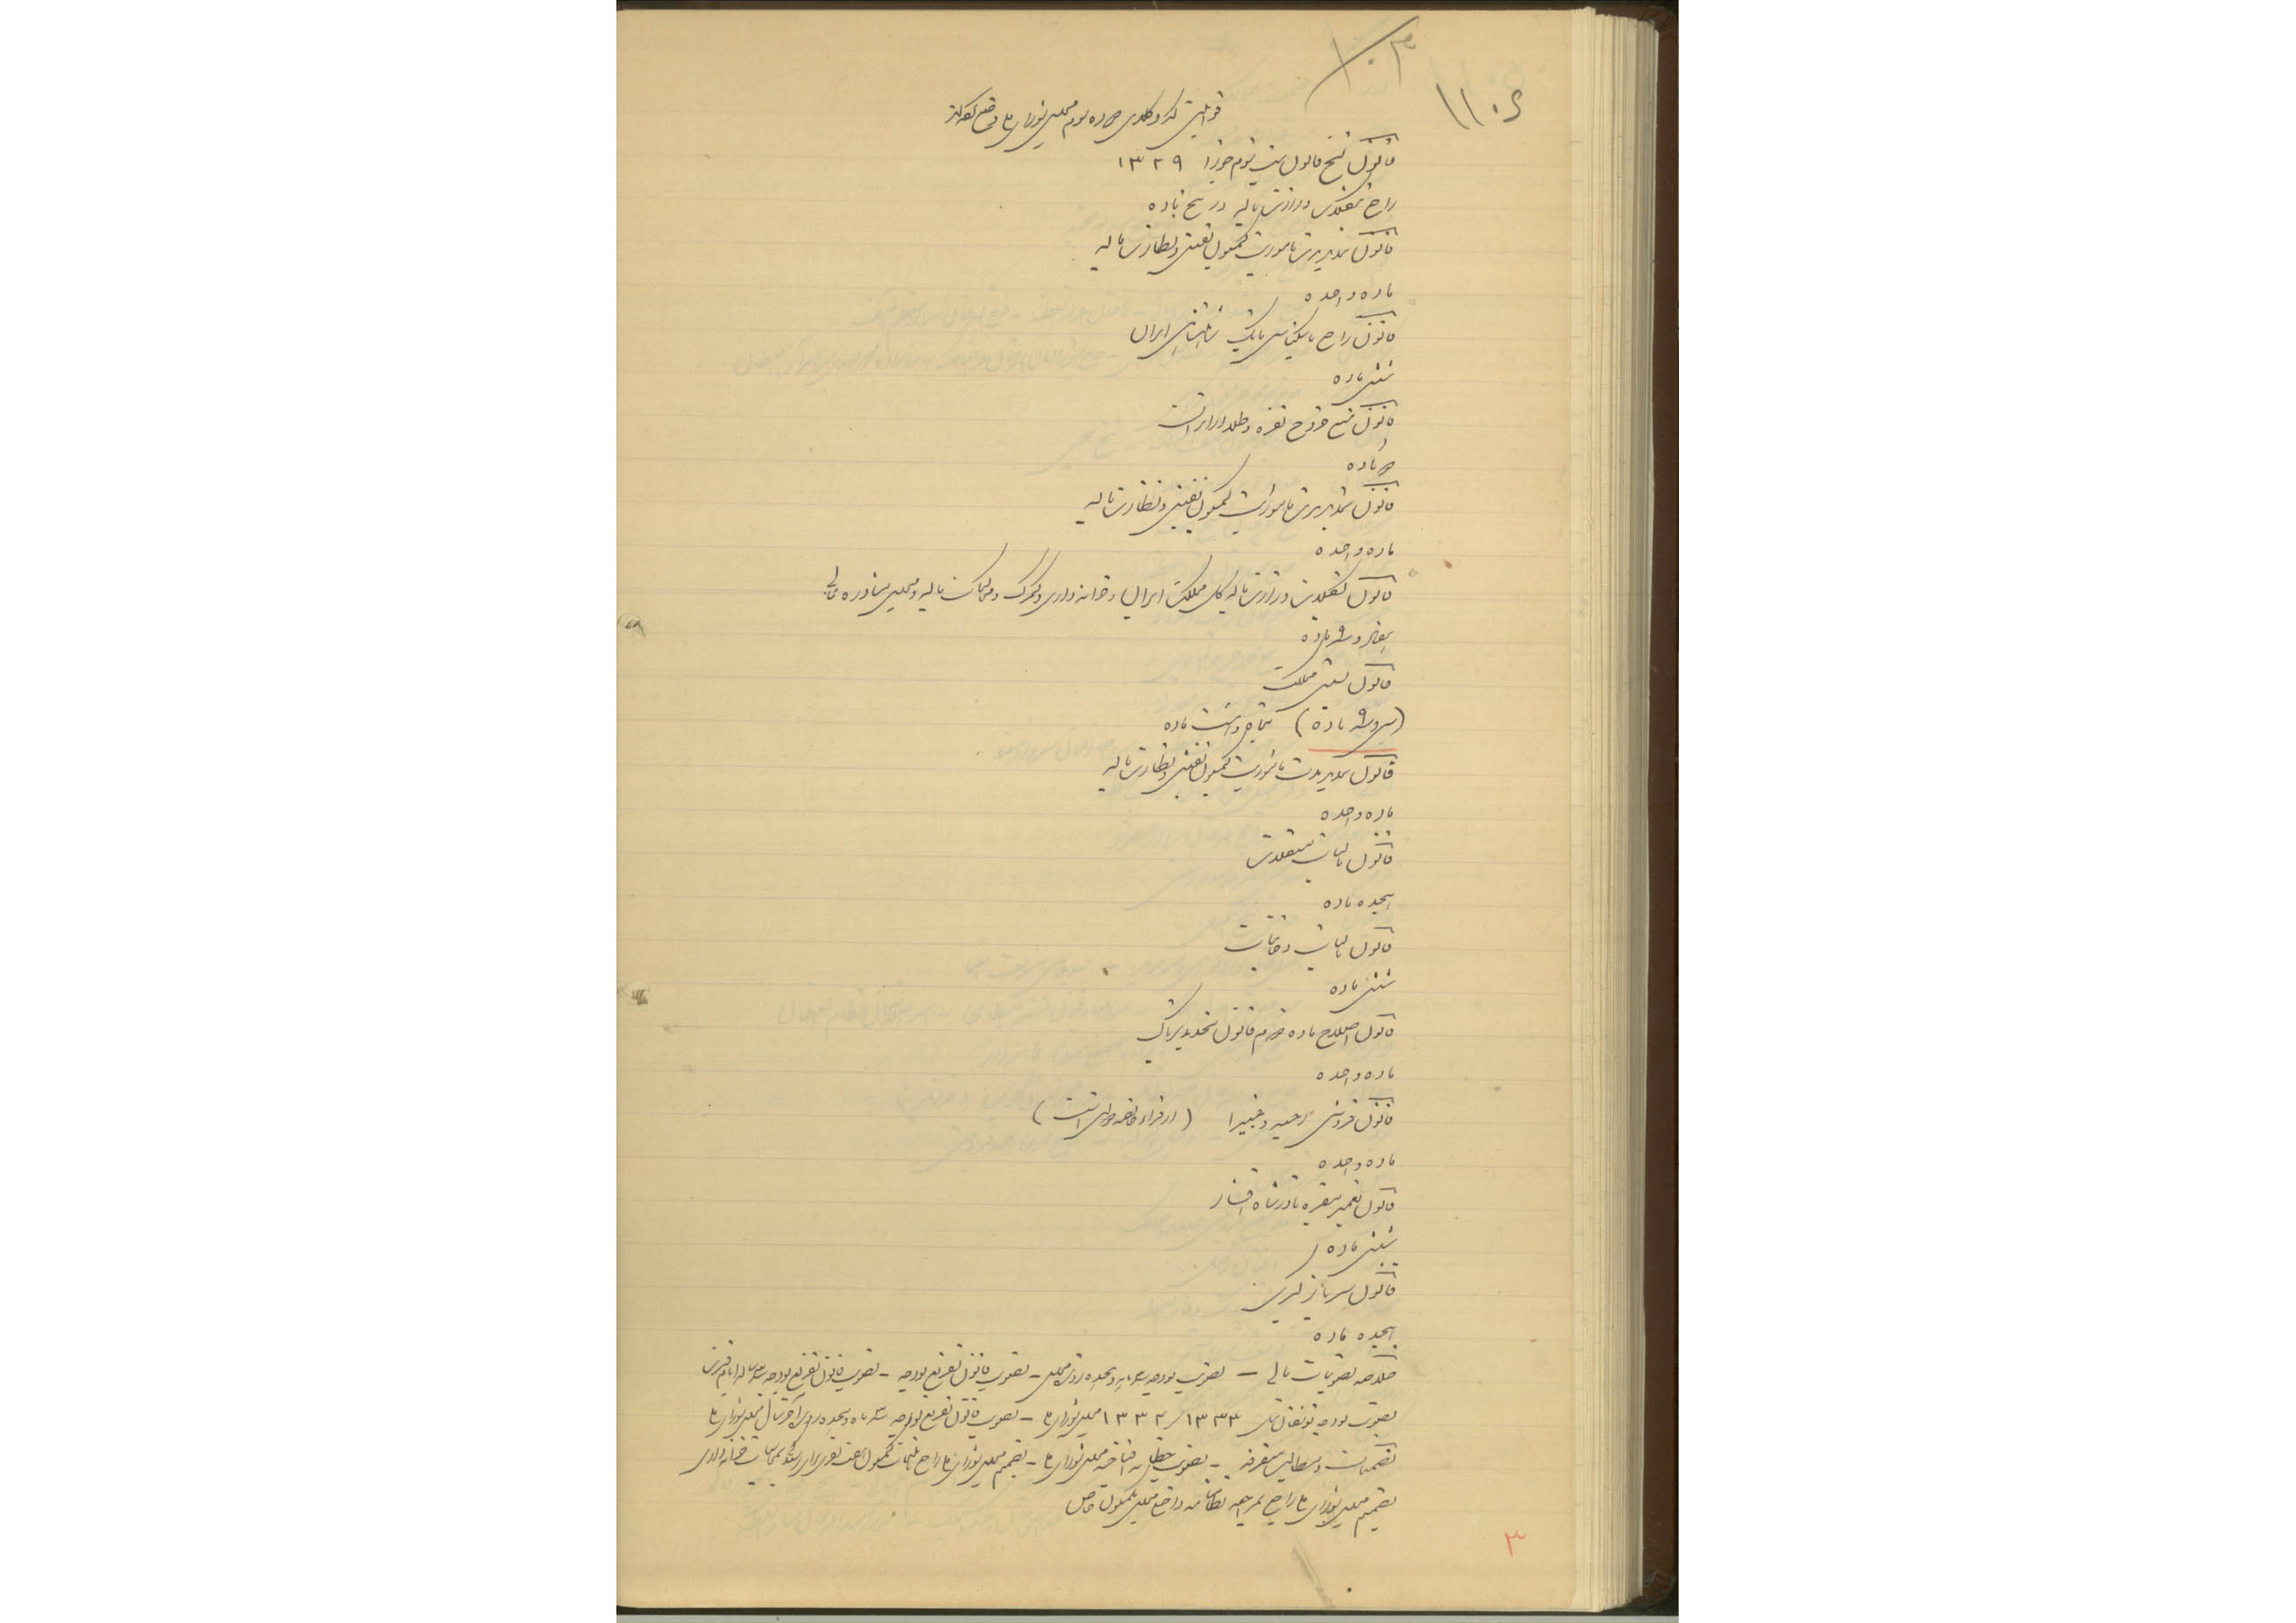 ۱۰۳
۱۱۰۵
قوانینی که وکلای دوره سوم مجلس شورای ملی وضع کرده‌اند
قانون نسخ قانون بیست سوم جوزا ۱۳۲۹
راجع بتشکیلات وزارت مالیه در پنج ماده
قانون تمدید مدت مأموریت کمسیون تفتیش و نظارت مالیه
ماده واحده
قانون راجع باسکناس بانک شاهنشاهی ایران
شش ماده
قانون منع خروج نقره و طلا از ایران
ماده
قانون تمدید مدت مأموریت کمسیون تفتیش و نظارت مالیه
ماده واحده
قانون تشکیلات وزارت مالیه کل مملکت ایران و خزانه‌داری و گمرک و محاکمات مالیه و مجلس مشاوره عالی
ماده
قانون مملکت
(سی و شش ماده) پنجاه و هشت ماده
قانون تمدید مدت مأموریت کمسیون تفتیش و نظارت مالیه
ماده واحده
قانون مالیات مستغلات
هیجده ماده
قانون مالیات دخانیات
شش ماده
قانون اصلاح ماده دوم قانون تحدید تریاک
ماده واحده
قانون فروش (از قراء است)
ماده واحده
قانون تعمیر مقبره نادرشاه افشار
شش ماده
قانون سربازگیری
هیجده ماده
خلاصه تصویبات مالی – تصویب بودجه ماهه و هیجده روزه مجلس – تصویب قانون تفریغ بودجه – تصویب قانون تفریغ بودجه ایام فترت
تصویب بودجه ۱۳۳۳ ۱۳۳۲ مجلس شورای ملی – تصویب قانون تفریغ بودجه ماه و هیجده روزه آخر سال مجلس شورای ملی
تصمیمات و مطالب متفرقه – تصویب خطابه افتتاحیه مجلس شورای ملی – تصمیم مجلس شورای ملی راجع بانتخاب کمسیون نفری برای رسیدگی بحسابات خزانه‌داری
تصمیم مجلس شورای ملی راجع بمراجعه نظامنامه داخلی مجلس بکمسیون خاص
۳